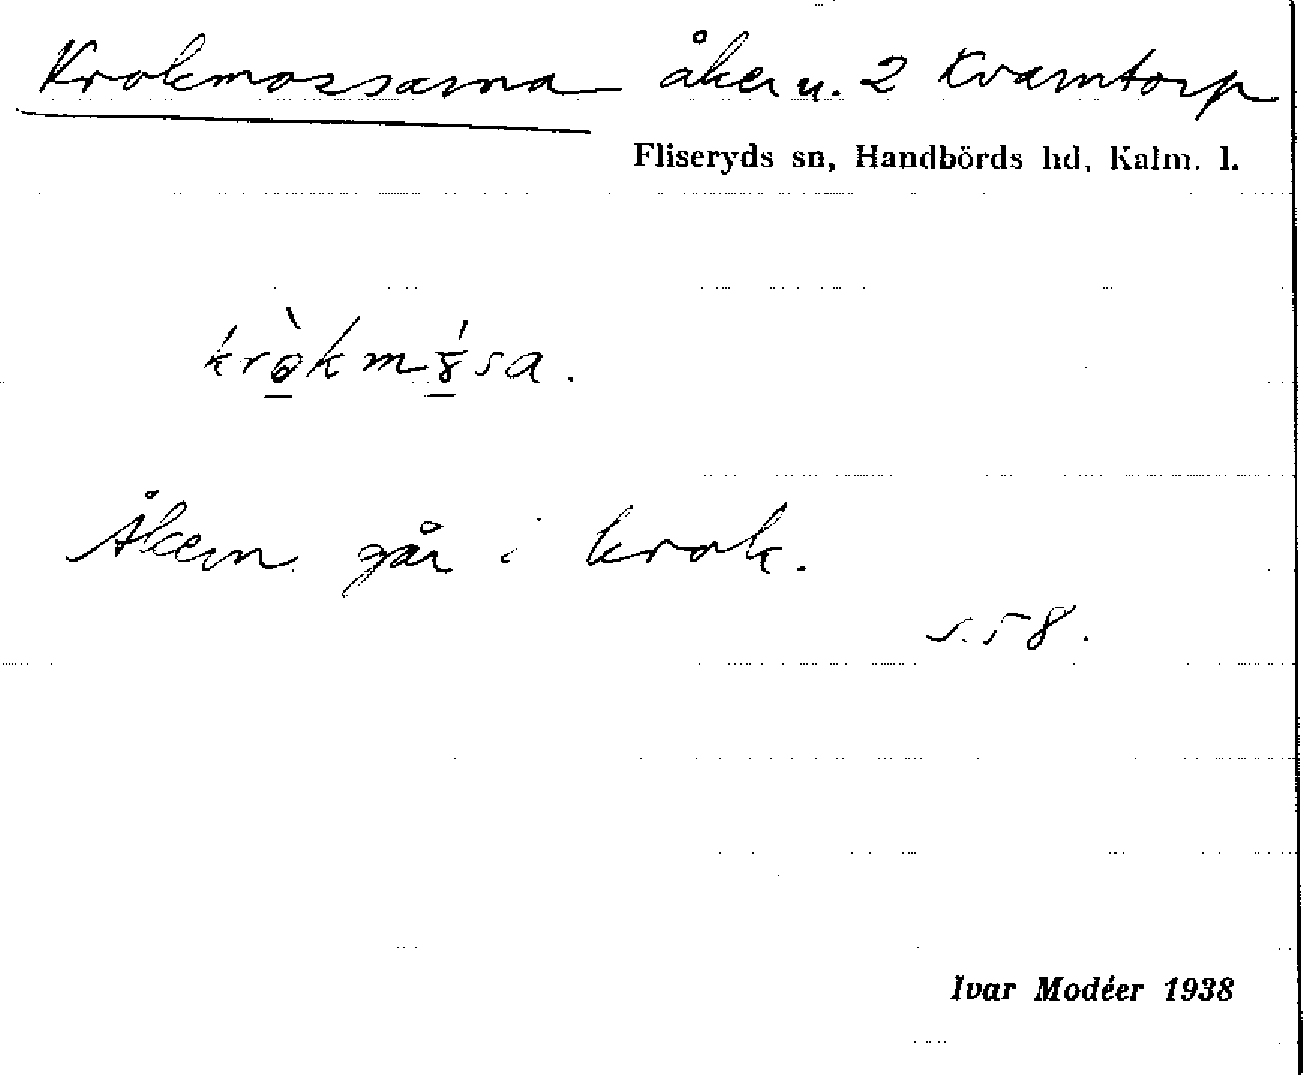 Krokmossarna åker u. 2 Kvarntorp
Fliseryds sn, Handbörds hd, Kalm. l.
Åkern går i krok.
s. 58.
Ivar Modéer 1938